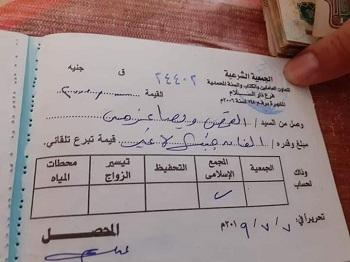 الجمعية الشرعية
لتعاون العاملين بالكتاب والسنة المحمدية
فرع دار السلام
ق جنيه
٢٤٤٠٢
القيمة
وصل من السيد /
مبلغ وقدره / الفان جنيه لا غير قيمة تبرع تلقائى
وذلك لحساب
الجمعية
المجمع الإسلامى
التحفيظ
تيسير الزواج
محطات المياه
تحريراً فى ٧ / ٧ / ٢٠١٩م
المحصل